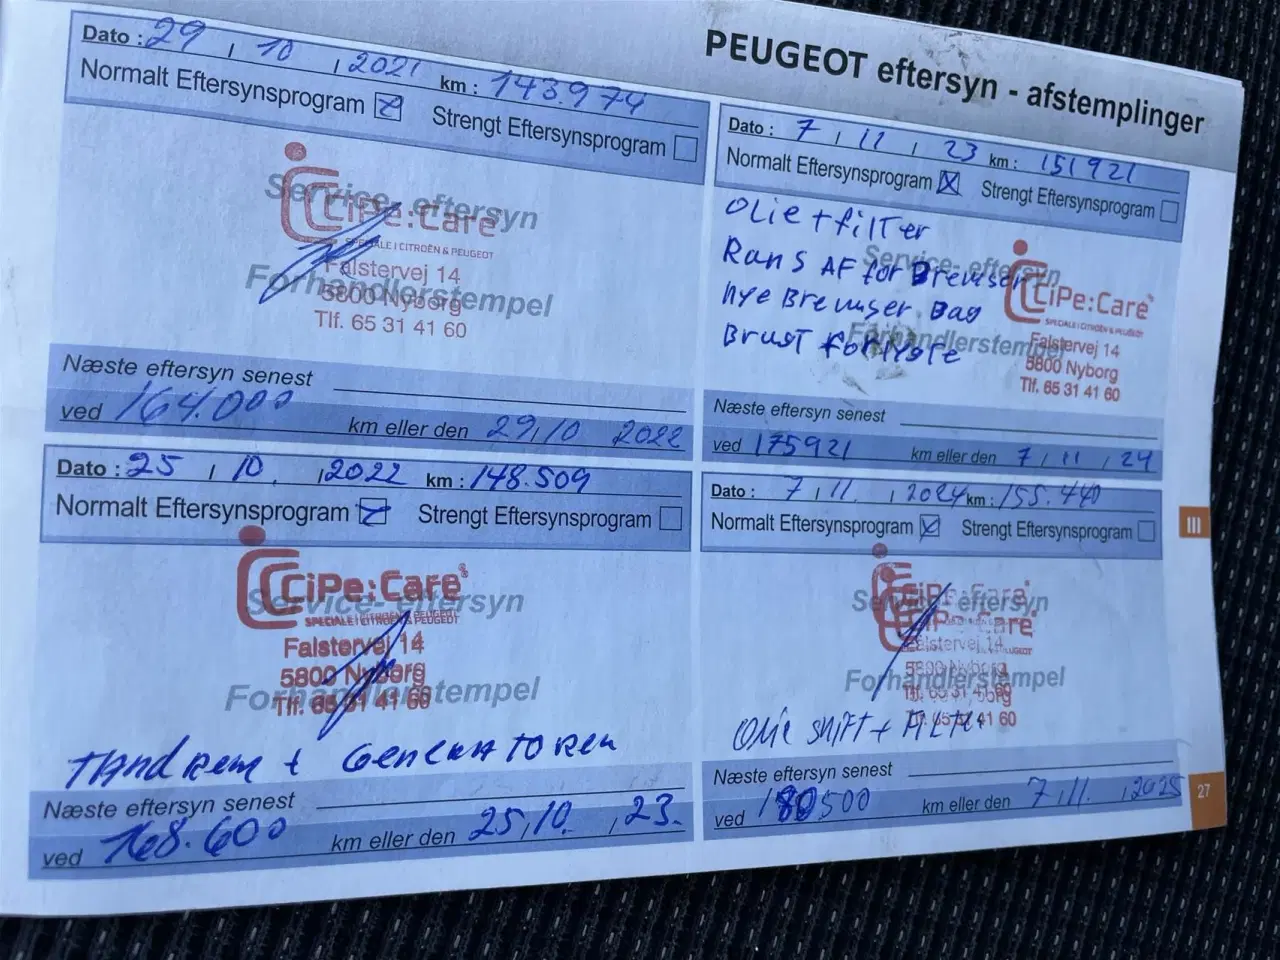 PEUGEOT eftersyn - afstemplinger
Dato : 29 / 10 / 2021 km : 143.974
Normalt Eftersynsprogram Strengt Eftersynsprogram
Service- eftersyn
CiPe:Care
SPECIALE I CITROËN & PEUGEOT
Falstervej 14
Forhandlerstempel
5800 Nyborg
Tlf. 65 31 41 60
Næste eftersyn senest
ved 164.000 km eller den 29/10 2022
Dato : 25 / 10. / 2022 km : 148.509
Normalt Eftersynsprogram Strengt Eftersynsprogram
CiPe:Care
Service- eftersyn
SPECIALE I CITROËN & PEUGEOT
Falstervej 14
5800 Nyborg
Forhandlerstempel
Tlf. 65 31 41 60
TAndRem + GeneRAToRen
Næste eftersyn senest
ved 168.600 km eller den 25/10. / 23.
Dato : 7 / 11 / 23 km : 151921
Normalt Eftersynsprogram Strengt Eftersynsprogram
Olie + filTer
Rens AF for Bremser
Nye Bremser Bag
Brust forlygte
Service- eftersyn
CiPe:Care
SPECIALE I CITROËN & PEUGEOT
Forhandlerstempel
Falstervej 14
5800 Nyborg
Tlf. 65 31 41 60
Næste eftersyn senest
ved 175921 km eller den 7 / 11 / 24
Dato : 7 / 11. / 2024 km : 155.440
Normalt Eftersynsprogram Strengt Eftersynsprogram
CiPe:Care
Service- eftersyn
CiPe:Care
Falstervej 14
5800 Nyborg
Forhandlerstempel
Tlf. 65 31 41 60
Olie skift + Filter
Næste eftersyn senest
ved 180500 km eller den 7 / 11. / 2025
III
27